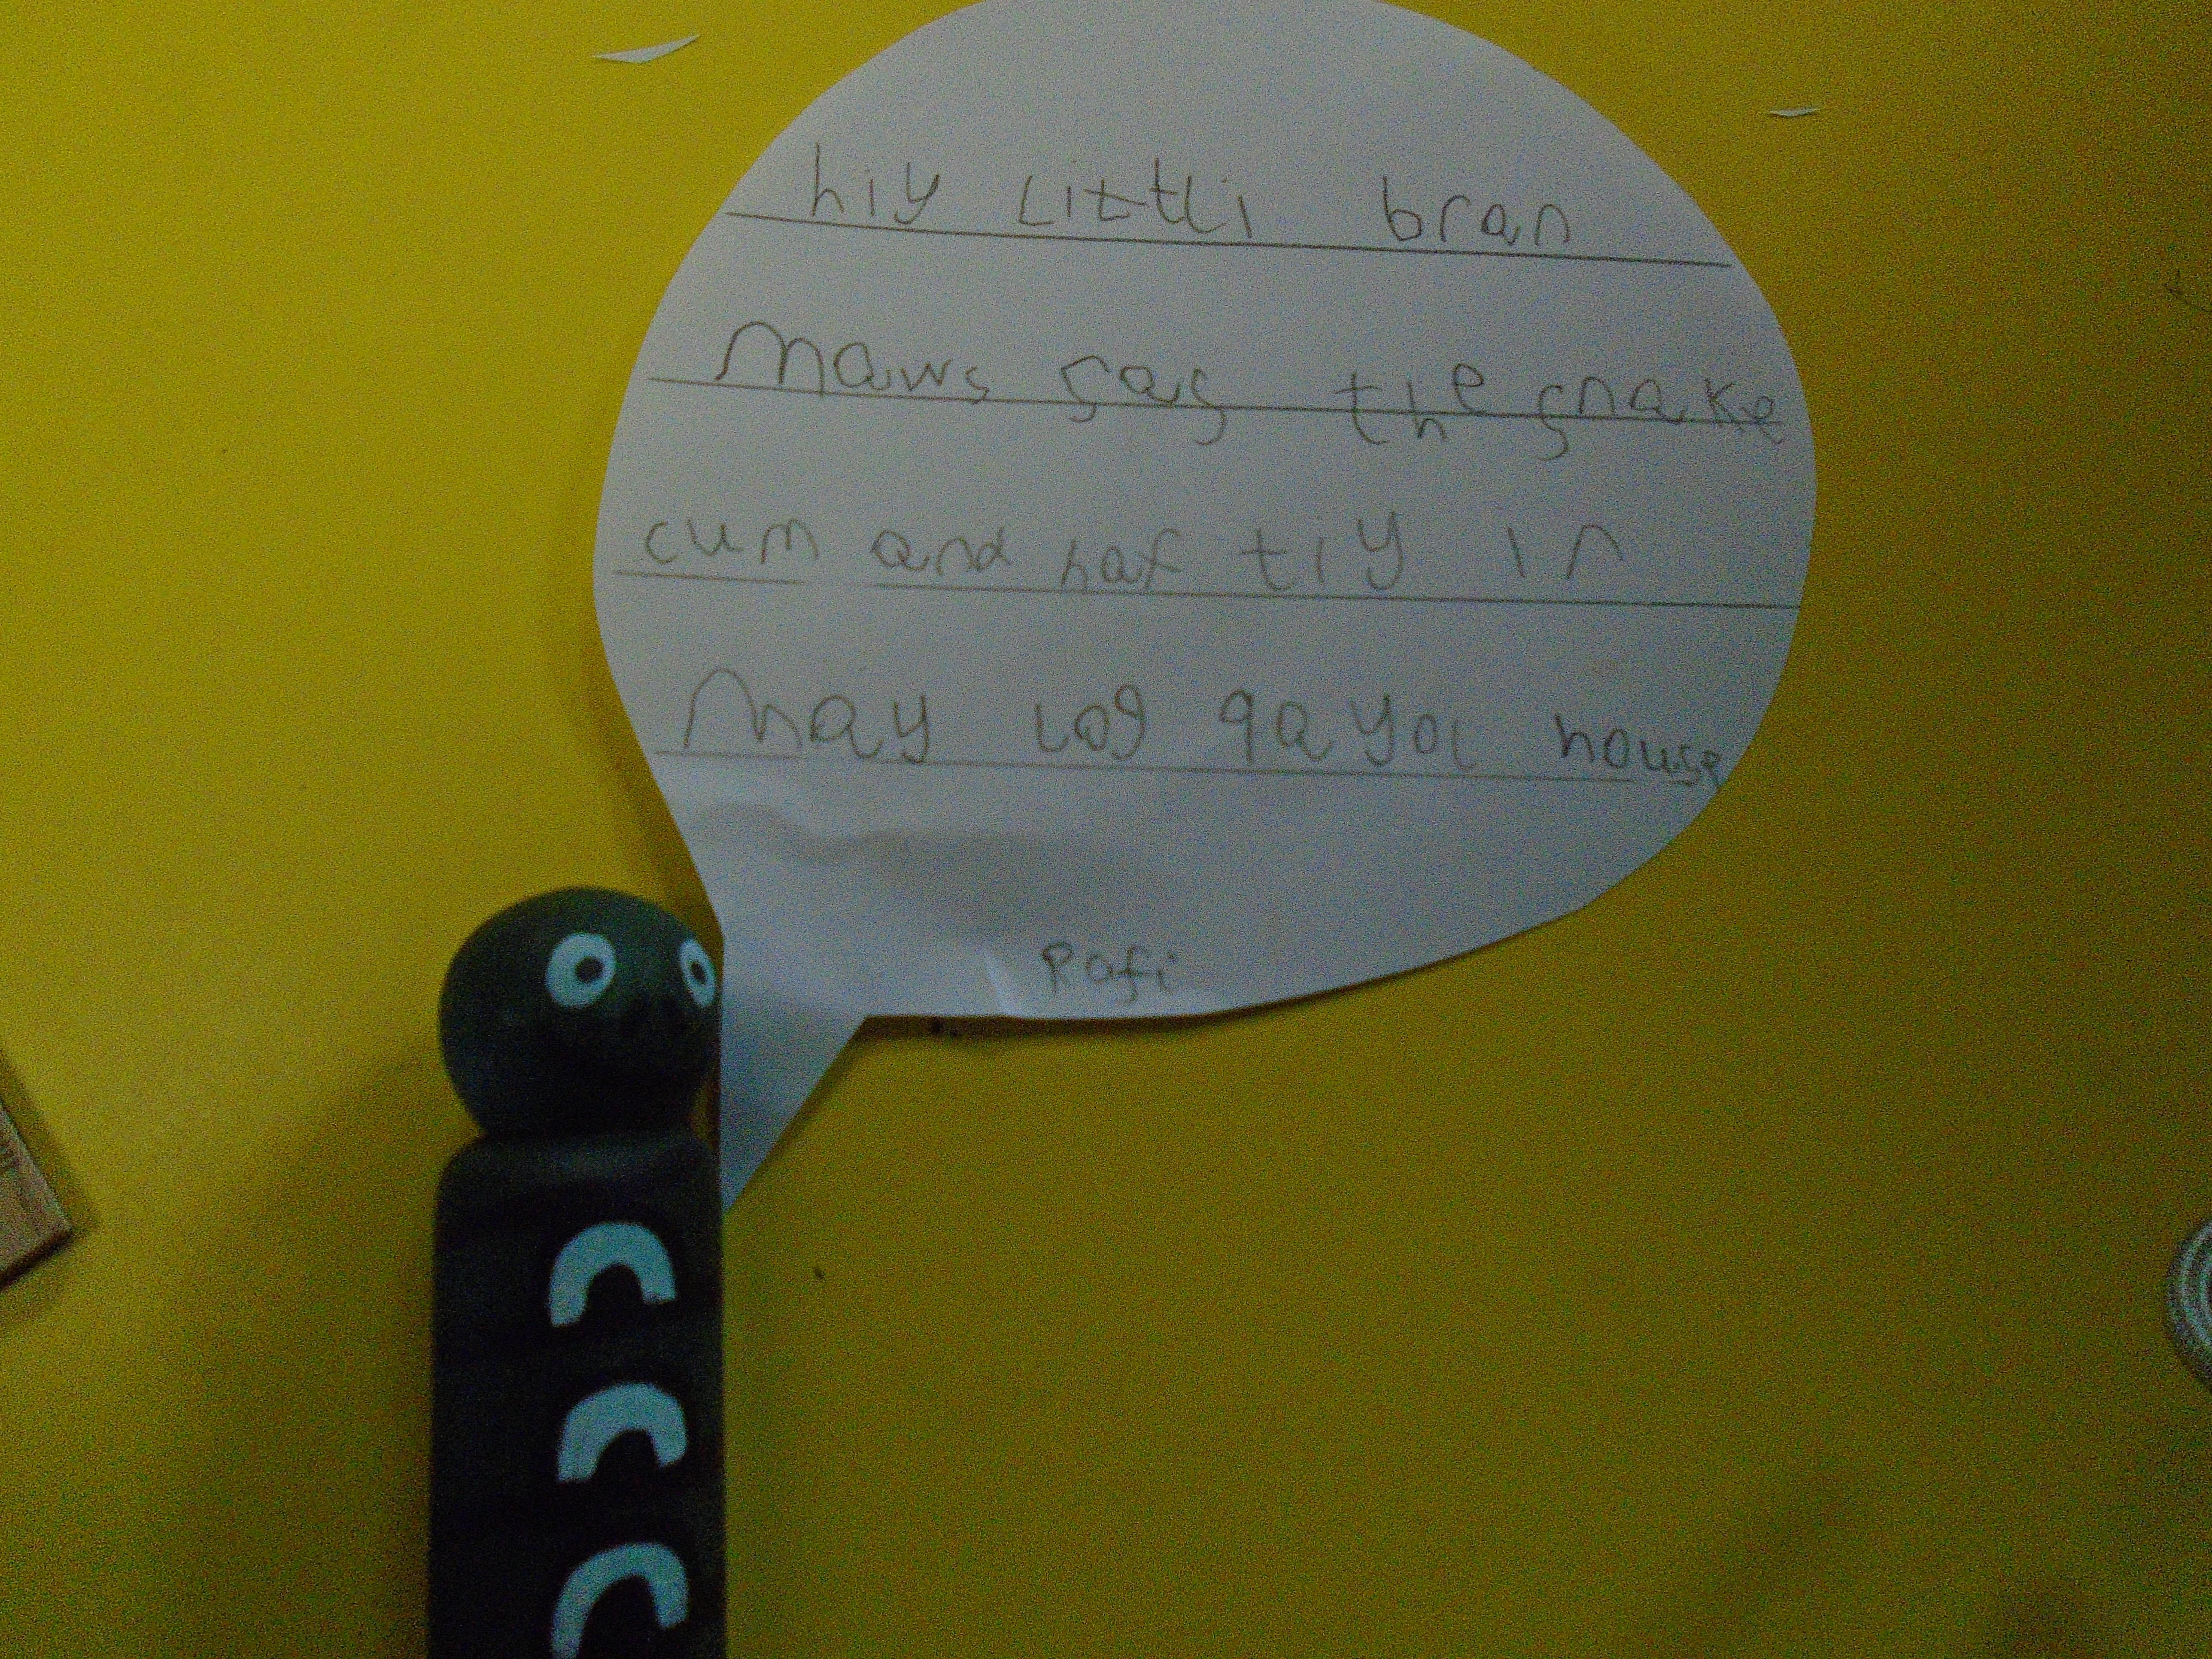 hiy Littli bran
maws sas the snake
cum and haf tiy in
may log qa yol house
Rafi